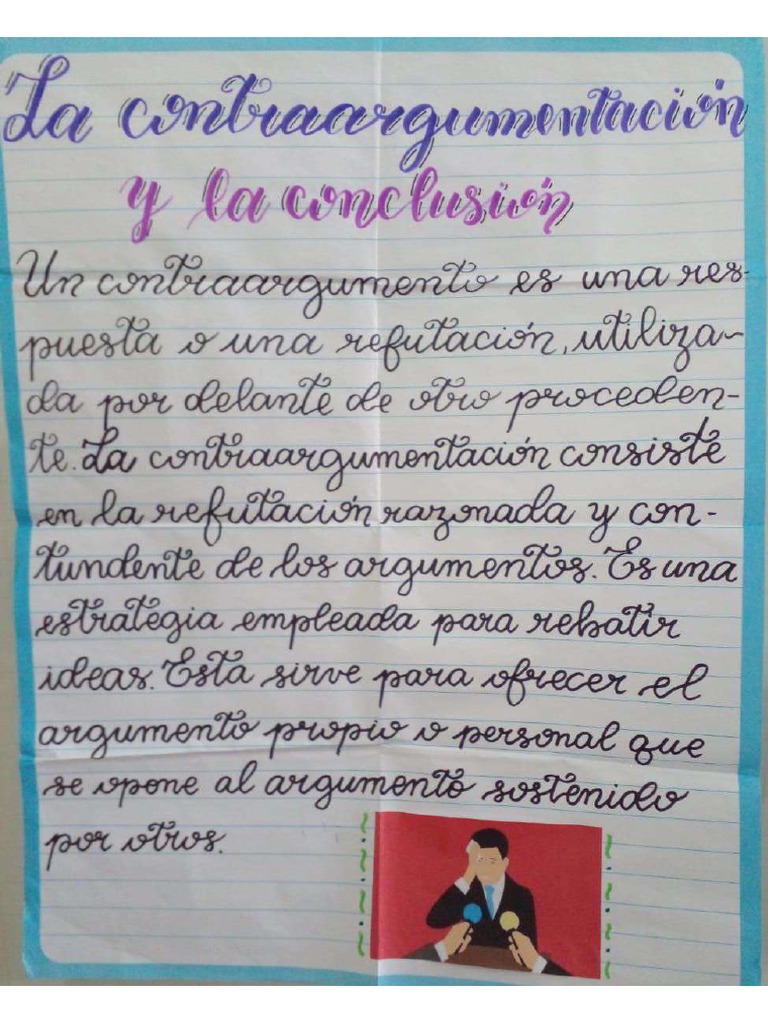 La contraargumentación
y la conclusión
Un contraargumento es una res-
puesta o una refutación, utiliza-
da por delante de otro proceden-
te. La contraargumentación consiste
en la refutación razonada y con-
tundente de los argumentos. Es una
estrategia empleada para rebatir
ideas. Esta sirve para ofrecer el
argumento propio o personal que
se opone al argumento sostenido
por otros.